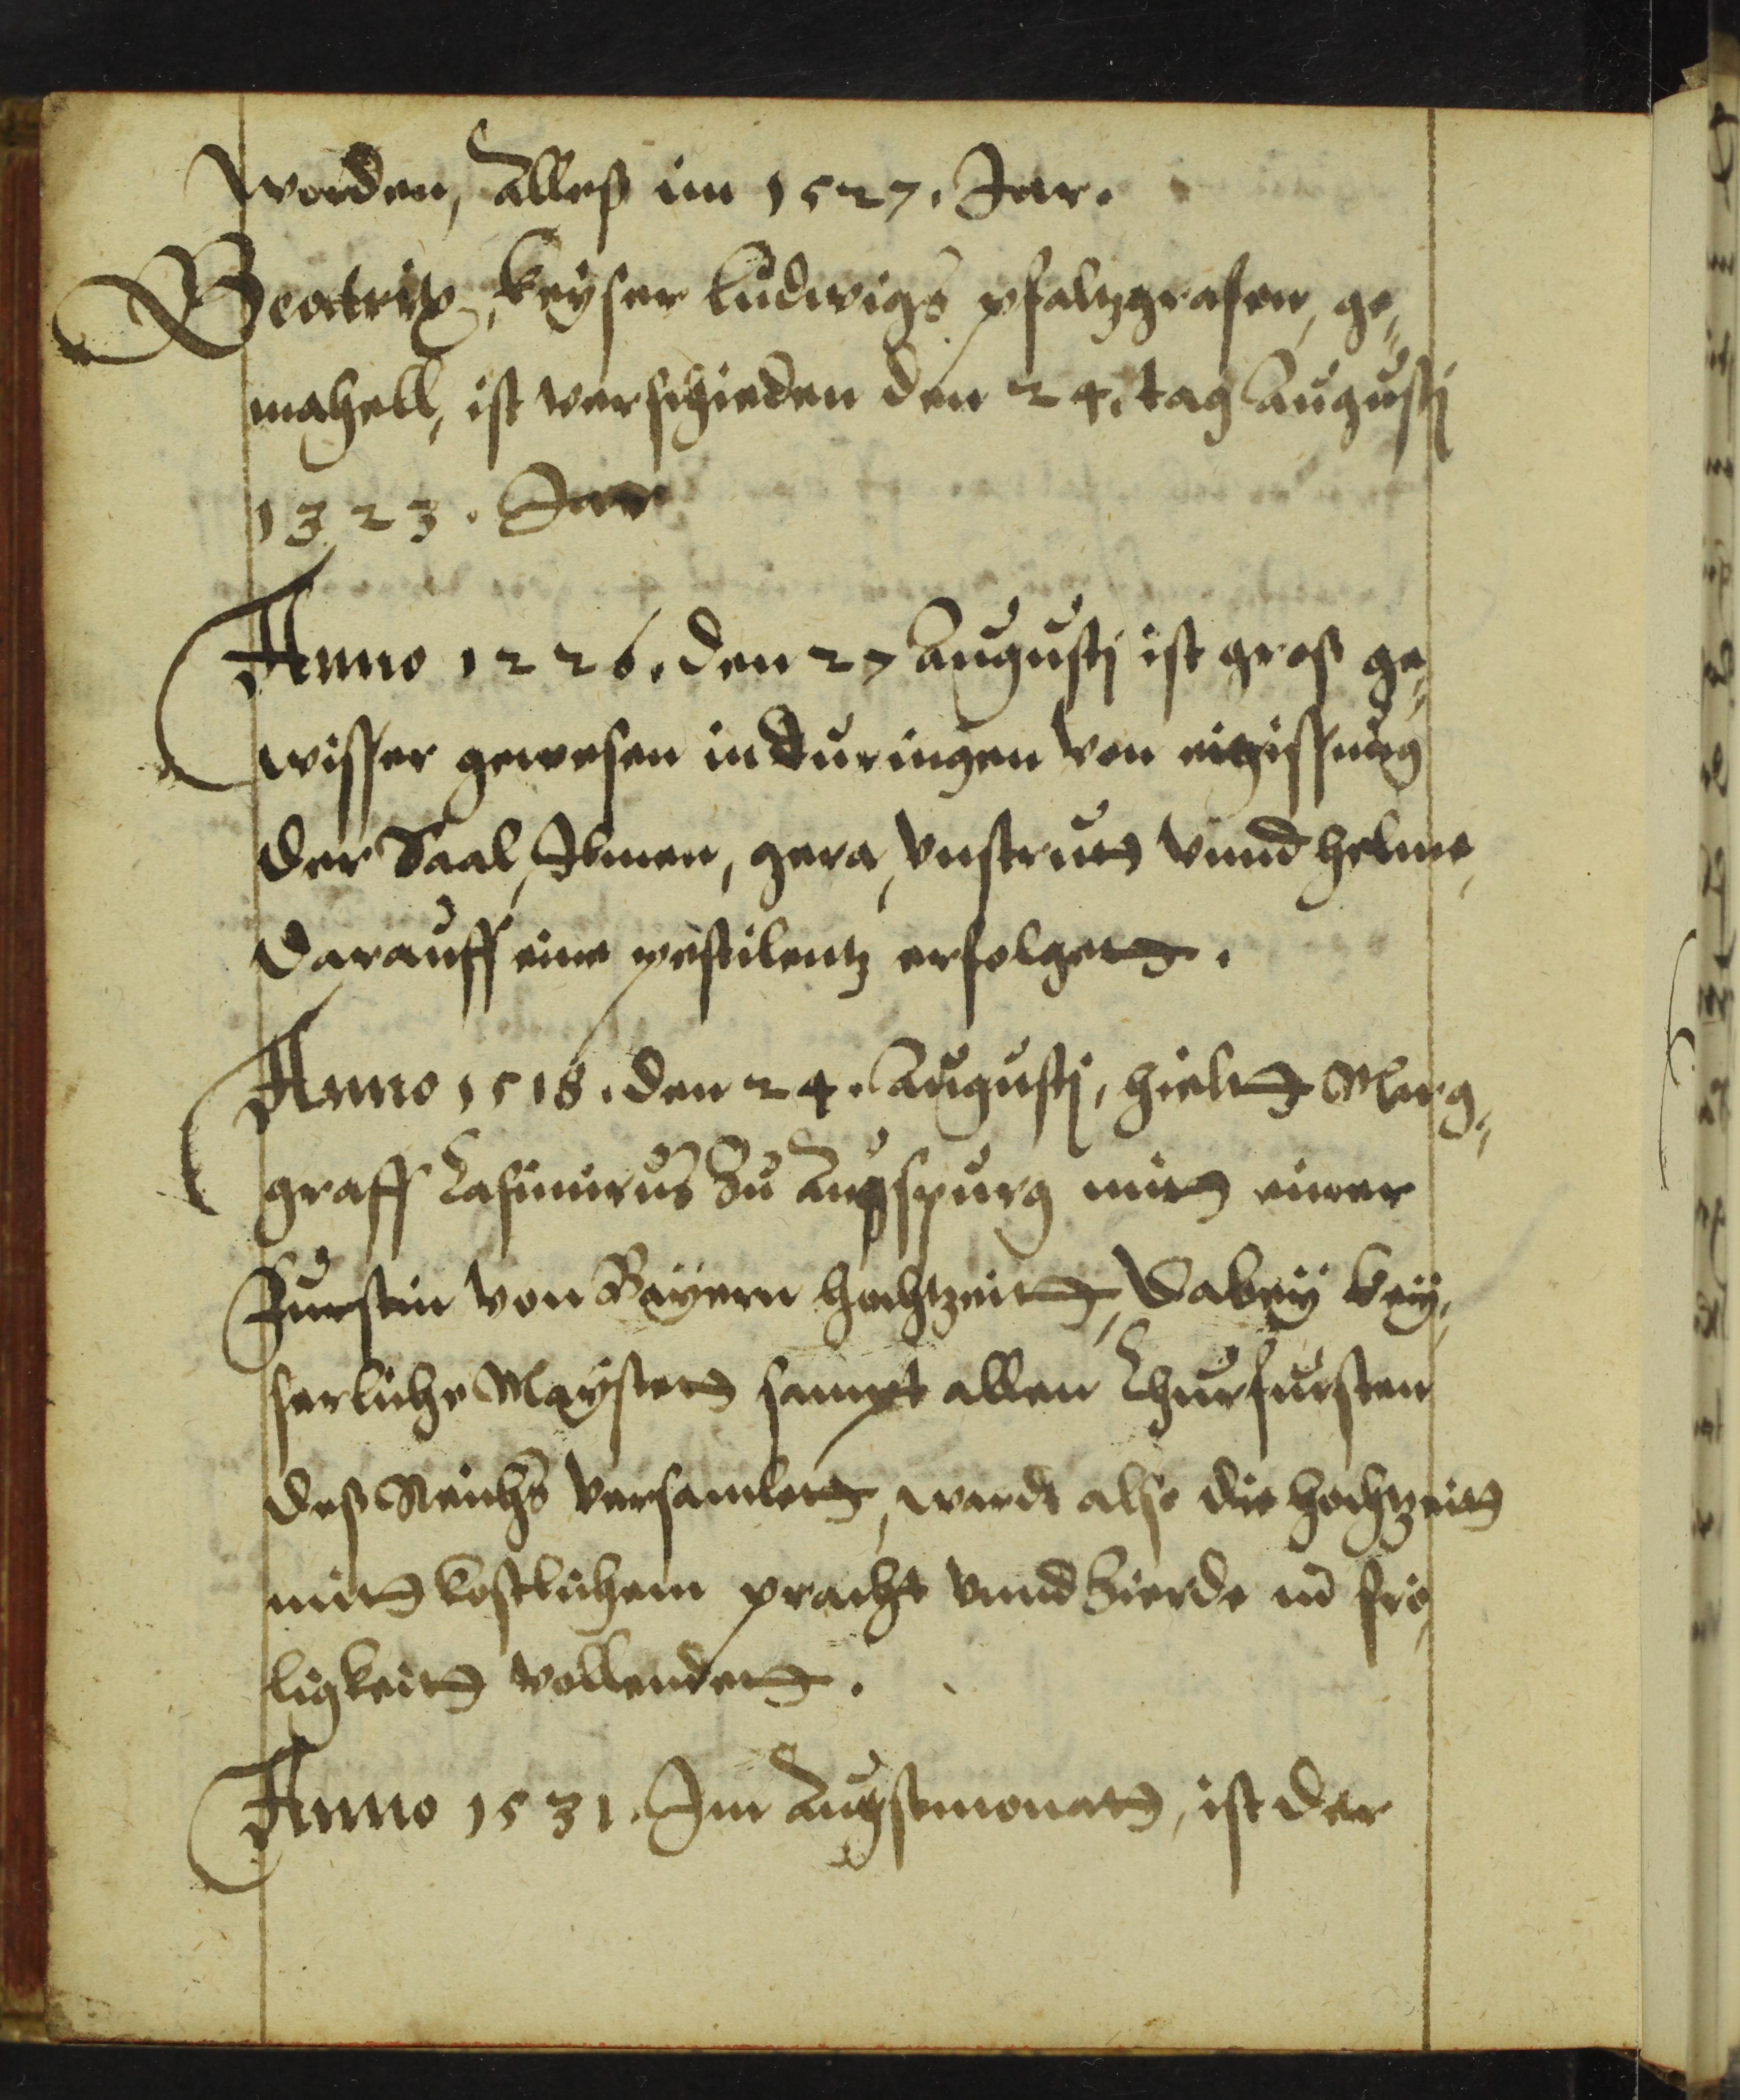 worden, Alleß im 1527. Jar.
Beatrix, keyser Ludwigs pfaltzgrafen, ge¬
mahell, ist verschieden den 24. tag Augustj
1323. Jar
Anno 1226. den 27 Augustj ist groß ge¬
wisser gewesen in Duringen von
der Saal, Ilmen, gera, Vnstrut vnnd helme,
darauff eine pestilentz erfolgett.
Anno 1518. den 24. Augustj, hielt Marg¬
graff Casimirus Zu Augspurg mitt einer
Furstin von Bayern hochtzeitt, Dabey key¬
serliche Maystett sampt allen Churfursten
deß Reichs versamlett, wardt also die hochtzeitt
mitt kostlichem pracht vnnd Zierde in frö¬
ligkeitt vollendett.
Anno 1531. Im Augstmonatt, ist der